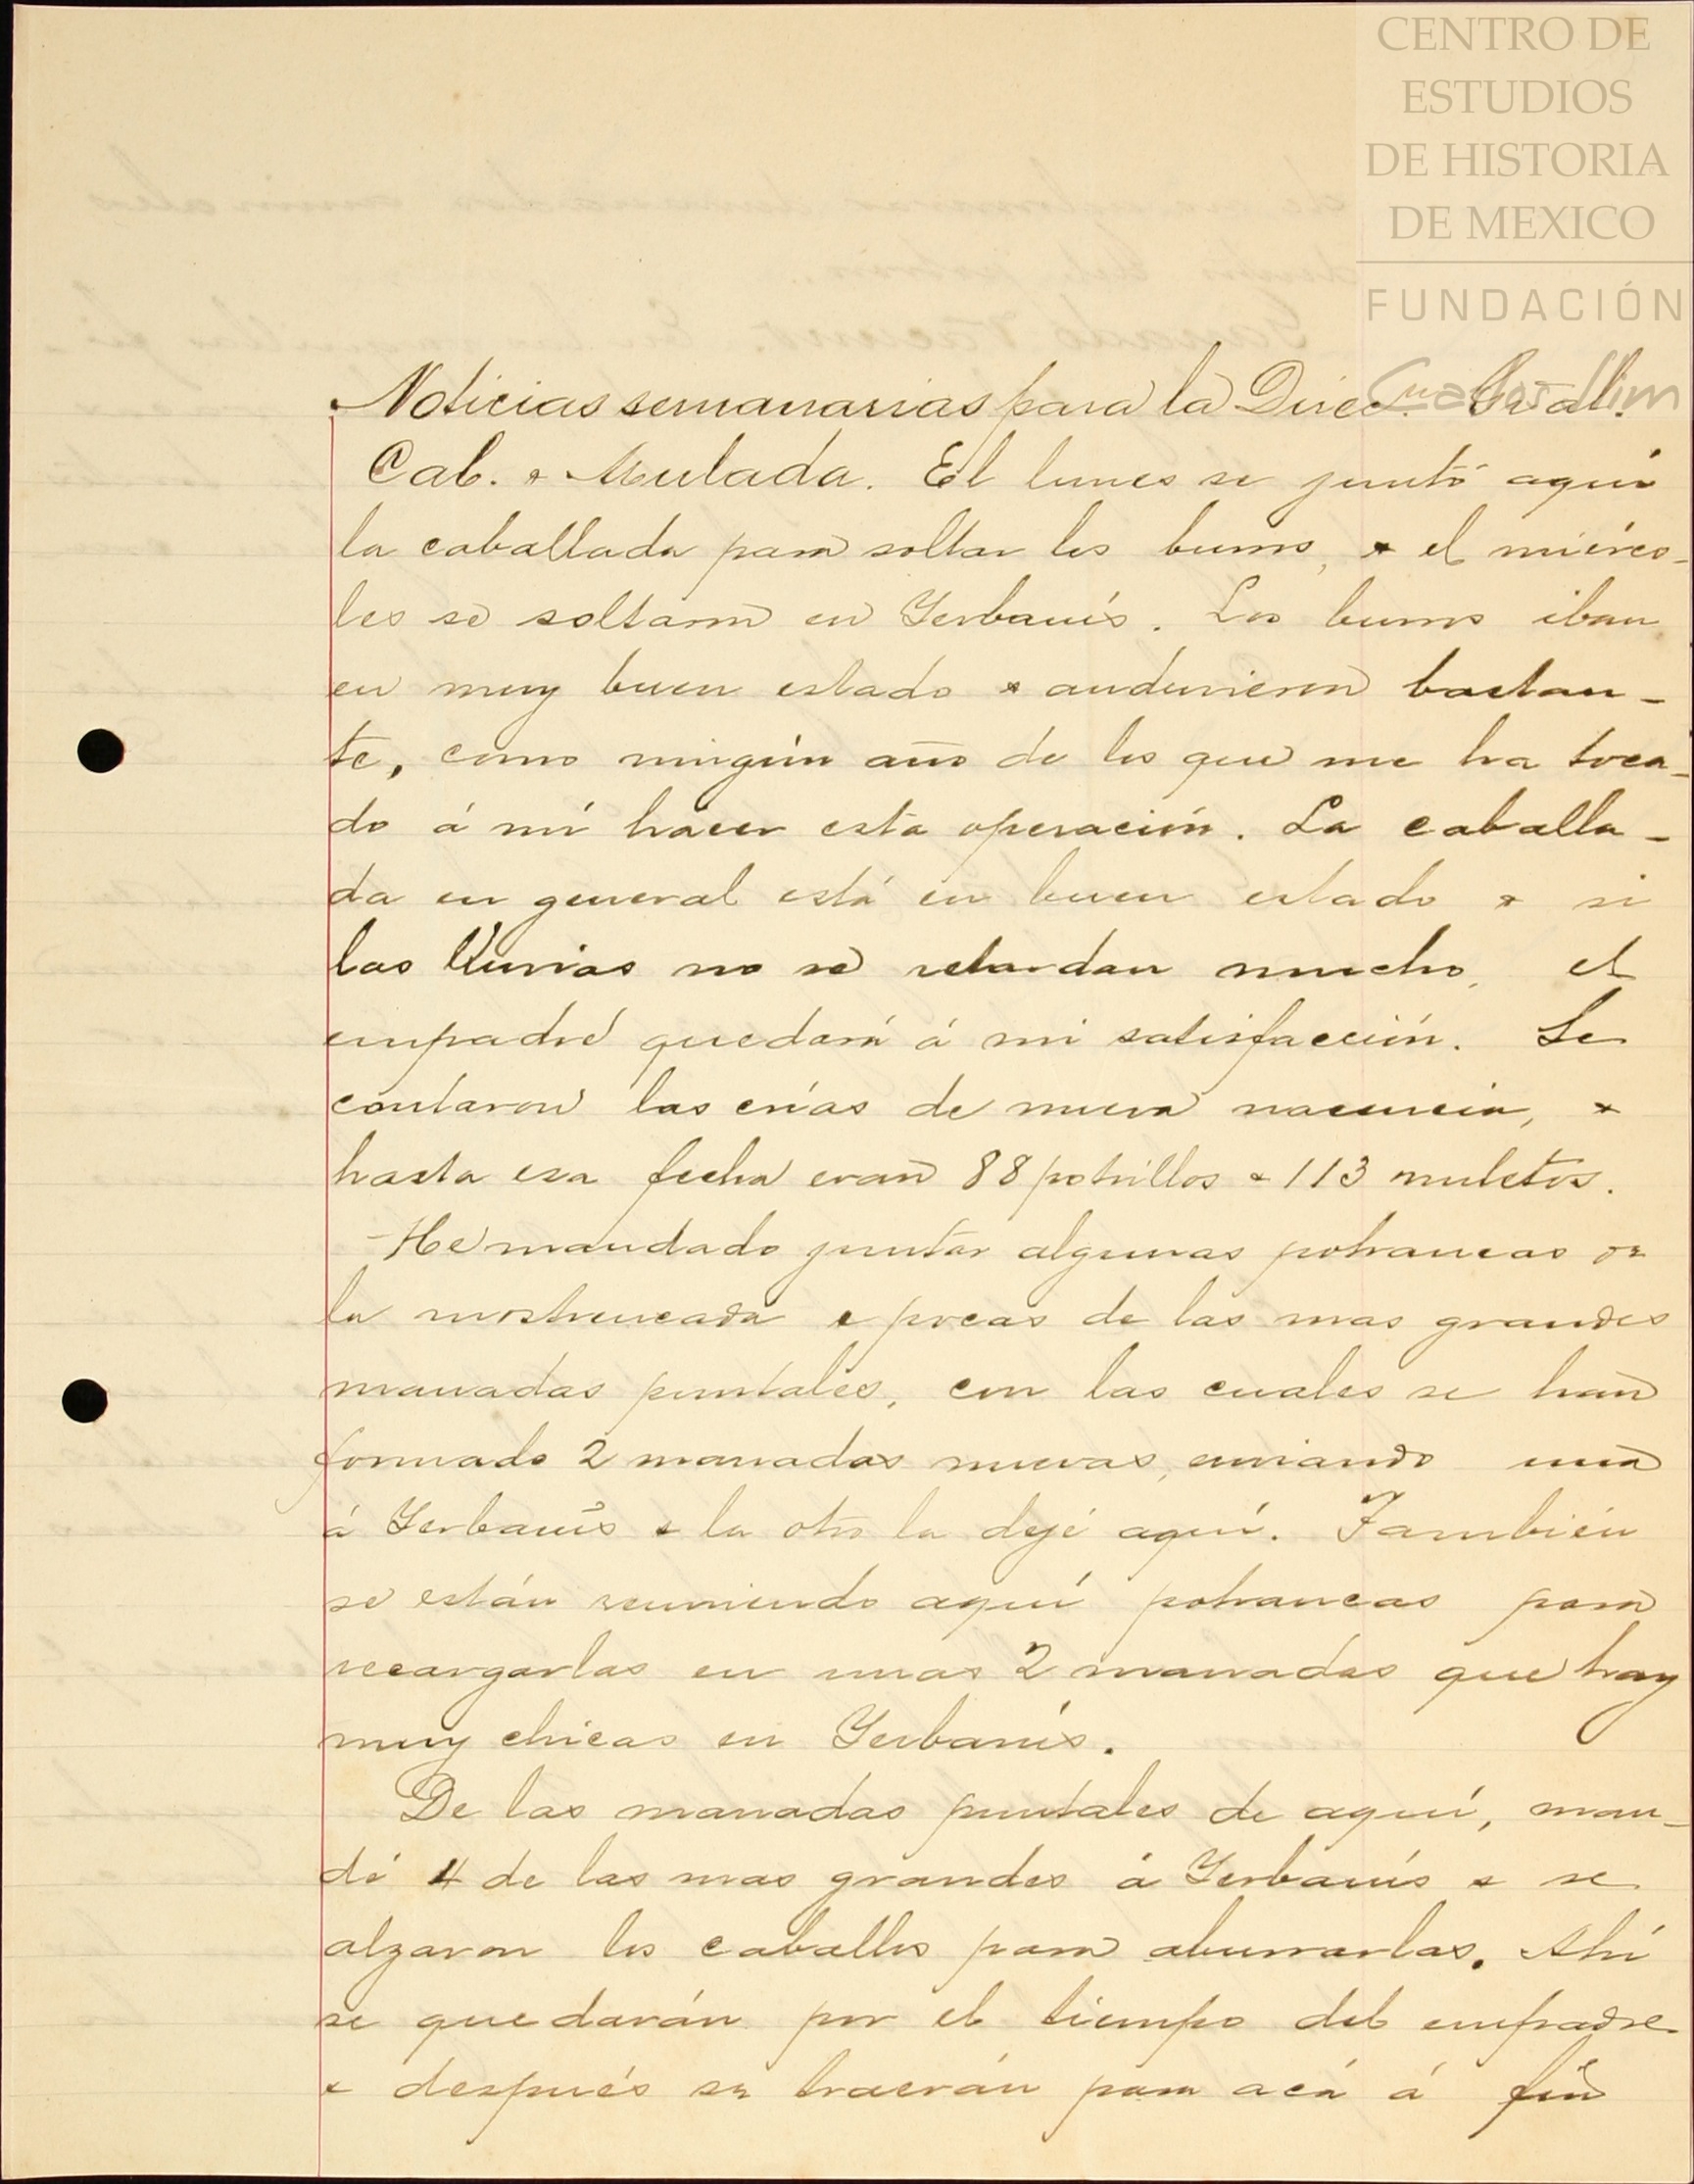 CENTRO DE
ESTUDIOS
DE HISTORIA
DE MEXICO
FUNDACIÓN
Carlos Slim
Noticias semanarias para la Direcn. Gral.
Cab. & Mulada. El lunes se juntó aquí
la caballada para soltar los burros, & el miérco-
les se soltaron en Yerbanís. Los burros iban
en muy buen estado & anduvieron bastan-
te, como ningún año de los que me ha toca-
do á mí hacer esta operación. La caballa-
da en general está en buen estado & si
las lluvias no se retardan mucho, el
empadre quedará á mi satisfacción. Se
contaron las crías de nueva nacencia, &
hasta esa fecha eran 88 potrillos & 113 muletos.
He mandado juntar algunas potrancas de
la mostrencada & pocas de las mas grandes
manadas puntales, con las cuales se han
formado 2 manadas nuevas, enviando una
á Yerbanís & la otra la dejé aquí. También
se están reuniendo aquí potrancas para
recargarlas en unas 2 manadas que hay
muy chicas en Yerbanís.
De las manadas puntales de aquí, man-
dé 4 de las mas grandes á Yerbanís & se
alzaron los caballos para aburrarlas. Ahí
se quedarán por el tiempo del empadre
& después se traerán para acá á fin